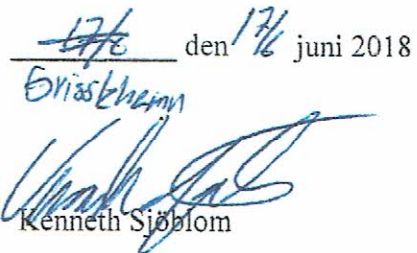 17/6 den 17/6 juni 2018
Grisslehamn
Kenneth Sjöblom